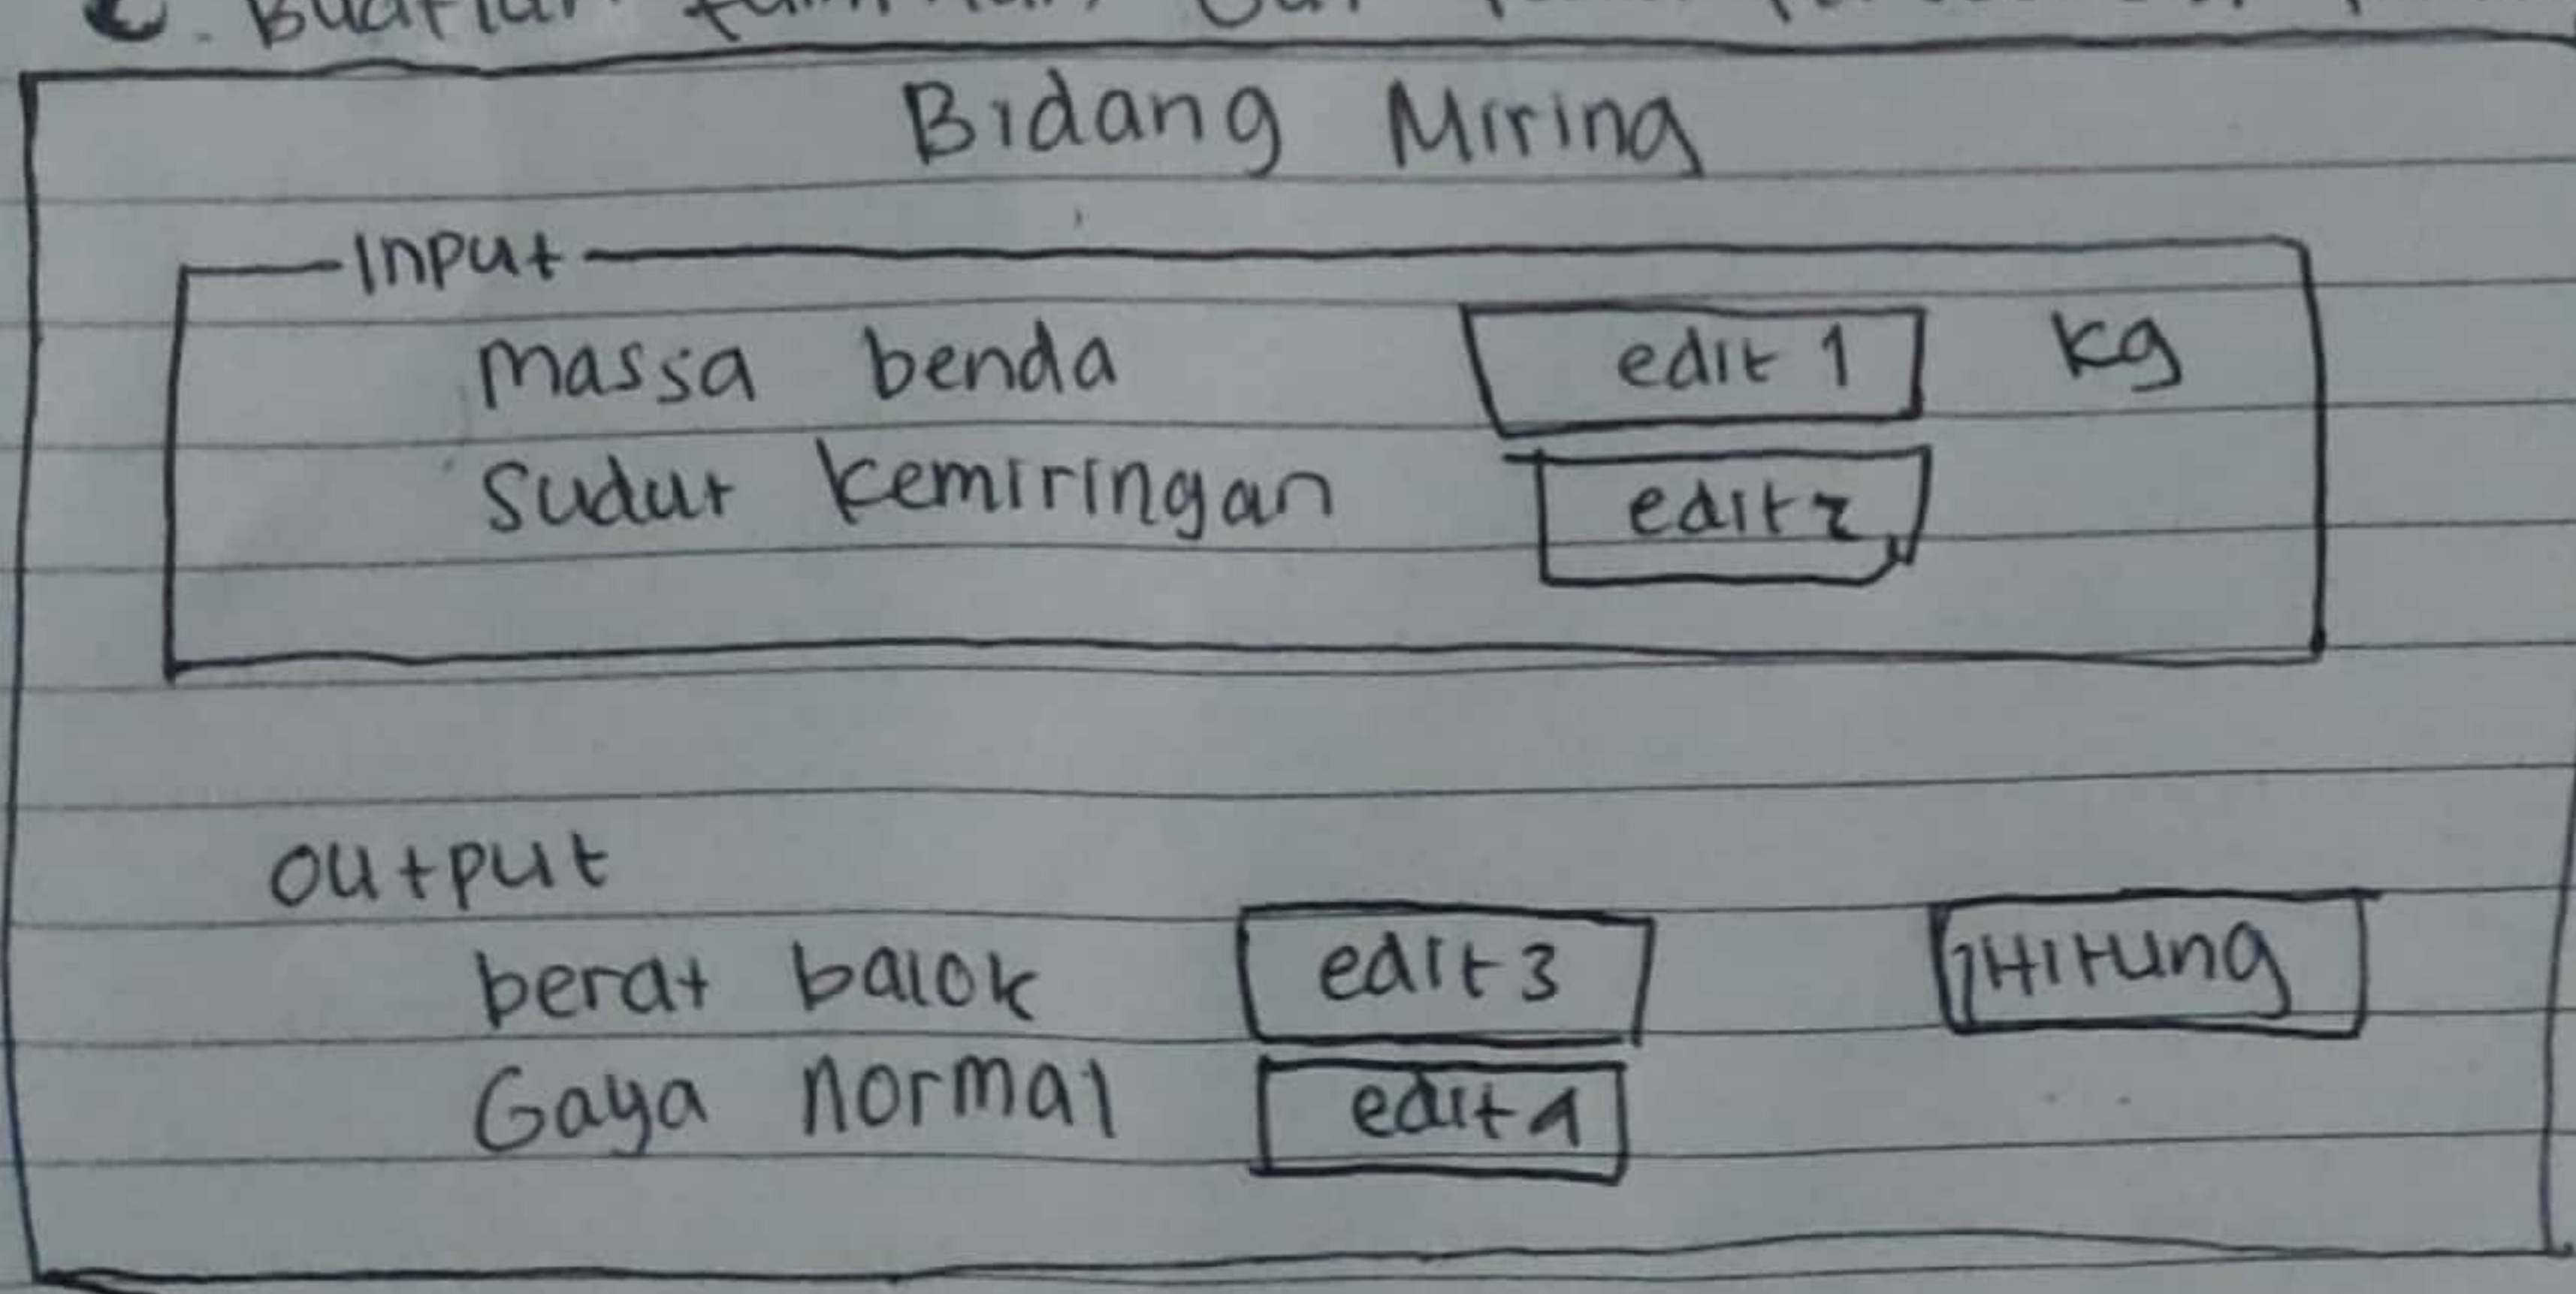 Bidang Miring
Input
massa benda edit 1 kg
Sudut kemiringan edit 2
output
berat balok edit 3 Hitung
Gaya normal edit 4